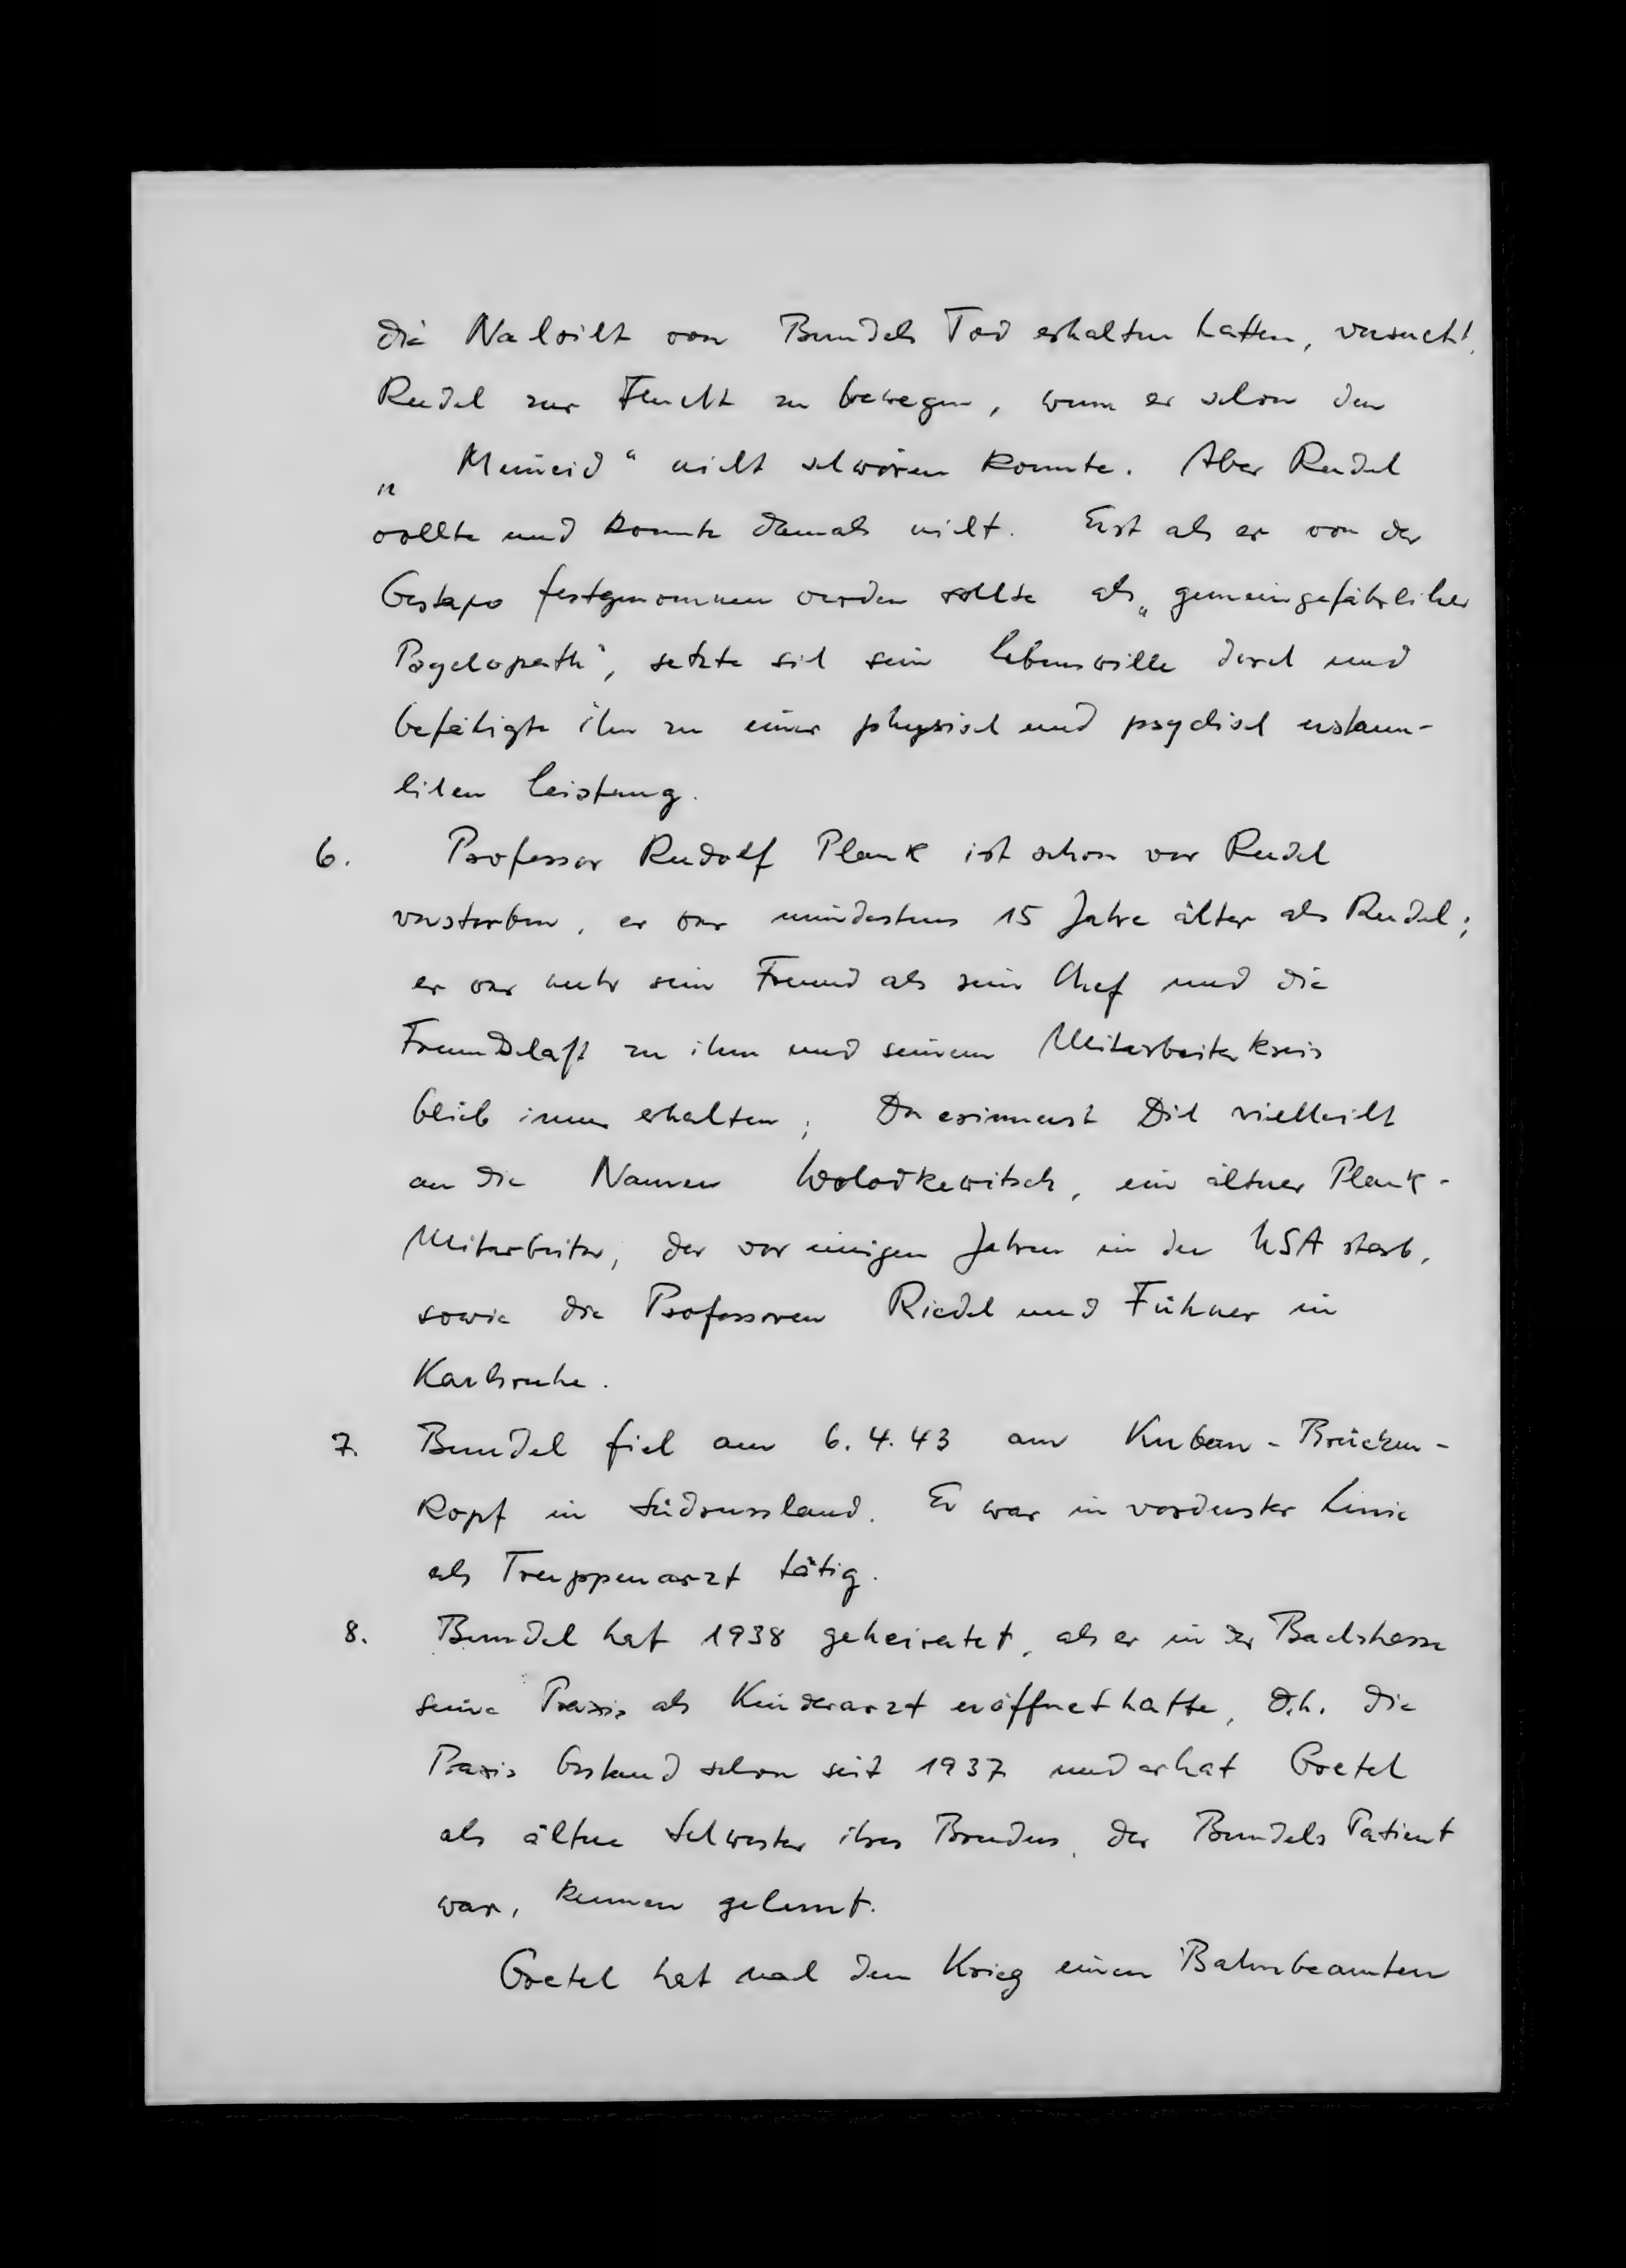 die Nachricht von Bundels Tod erhalten hatten, versucht,
Rudel zur Flucht zu bewegen, wenn er schon den
„Meineid“ nicht schwören konnte. Aber Rudel
wollte und konnte damals nicht. Erst als er von der
Gestapo festgenommen werden sollte als „gemeingefährlicher
Psychopath“, setzte sich sein Lebenswille durch und
befähigte ihn zu einer physisch und psychisch erstaun-
lichen Leistung.
6. Professor Rudolf Plank ist schon vor Rudel
verstorben, er war mindestens 15 Jahre älter als Rudel;
er war mehr sein Freund als sein Chef und die
Freundschaft zu ihm und seinem Mitarbeiterkreis
blieb immer erhalten; Du erinnerst Dich vielleicht
an die Namen Wolodkewitsch, ein älterer Plank-
Mitarbeiter, der vor einigen Jahren in den USA starb,
sowie die Professoren Riedel und Führer in
Karlsruhe.
7. Bundel fiel am 6.4.43 am Kuban-Brücken-
kopf in Südrussland. Er war in vorderster Linie
als Truppenarzt tätig.
8. Bundel hat 1938 geheiratet, als er in der Bachstrasse
seine Praxis als Kinderarzt eröffnet hatte, d.h. die
Praxis bestand schon seit 1937 und er hat Gretel
als ältere Schwester ihres Bruders, der Bundels Patient
war, kennen gelernt.
Gretel hat nach dem Krieg einen Bahnbeamten